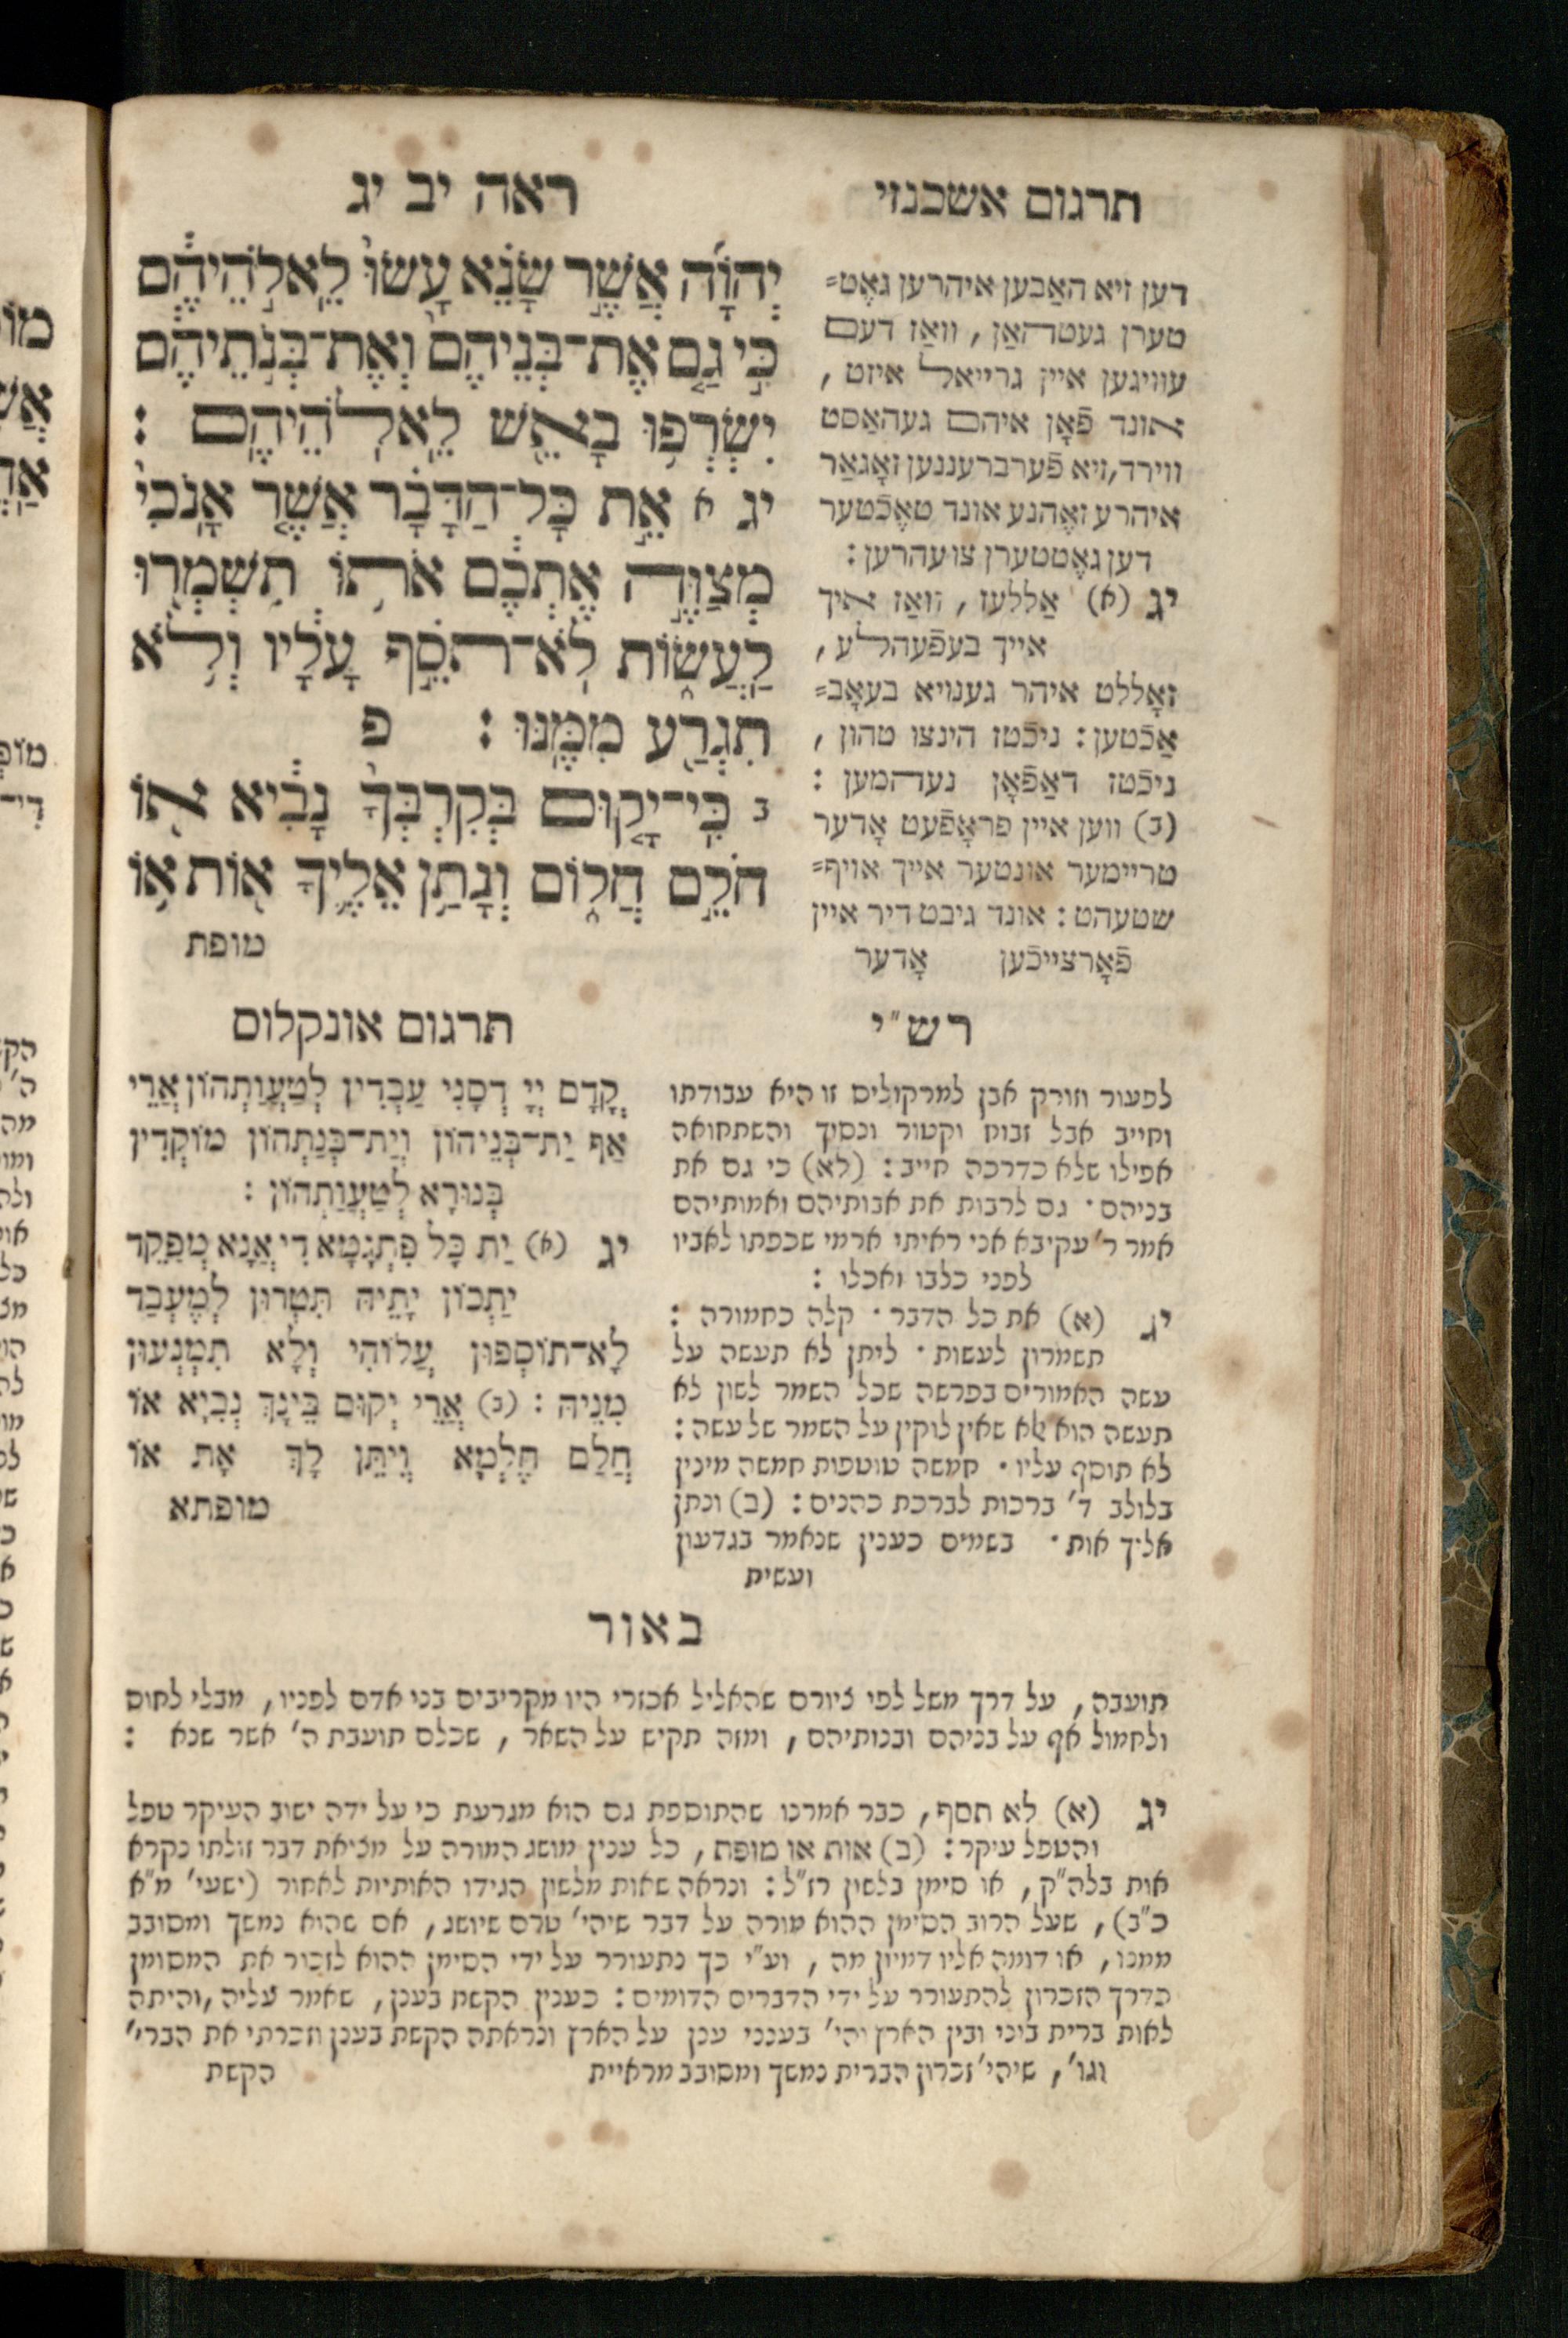 תרגום אשכנזי
ראה יב יג
יְהוָֹה אֲשֶׁר שָׂנֵא עָשׂוּ לֵאלֹהֵיהֶם
כִּי גַם אֶת־בְּנֵיהֶם וְאֶת־בְּנֹתֵיהֶם
יִשְׂרְפוּ בָאֵשׁ לֵאלֹהֵיהֶם :
יג א אֵת כָּל־הַדָּבָר אֲשֶׁר אָנֹכִי
מְצַוֶּה אֶתְכֶם אֹתוֹ תִשְׁמְרוּ
לַעֲשׂוֹת לֹא־תֹסֵף עָלָיו וְלֹא
תִגְרַע מִמֶּנּוּ : פ
ב כִּי־יָקוּם בְּקִרְבְּךָ נָבִיא אוֹ
חֹלֵם חֲלוֹם וְנָתַן אֵלֶיךָ אוֹת אוֹ
מופת
דען זיא האַבען איהרען גאָט=
טערן געטהאַן, וואַז דעם
עוויגען איין גרייאל איזט,
אונד פֿאָן איהם געהאַסט
ווירד, זיא פֿערברעננען זאָגאַר
איהרע זאָהנע אונד טאָכֿטער
דען גאָטטערן צו עהרען :
יג (א) אַללעז, וואַז איך
אייך בעפֿעהלע,
זאָללט איהר גענויא בעאָב=
אַכֿטען: ניכֿטז הינצו טהון,
ניכֿטז דאַפֿאָן נעהמען :
(ב) ווען איין פראָפֿעט אָדער
טריימער אונטער אייך אויף=
שטעהט: אונד גיבט דיר איין
פֿאָרצייכֿען אָדער
רש"י
לפעור וזורק אבן למרקוליס זו היא עבודתו
וחייב אבל זבוח וקטור ונסיך והשתחואה
אפילו שלא כדרכה חייב: (לא) כי גם את
בניהם · גם לרבות את אבותיהם ואמותיהם
אמר ר' עקיבא אני ראיתי ארמי שכפתו לאביו
לפני כלבו ואכלו :
יג (א) את כל הדבר · קלה כחמורה :
תשמרון לעשות · ליתן לא תעשה על
עשה האמורים בפרשה שכל השמר לשון לא
תעשה הוא אלא שאין לוקין על השמר של עשה:
לא תוסף עליו · חמשה טוטפות חמשה מינין
בלולב ד' ברכות לברכת כהנים: (ב) ונתן
אליך אות · בשמים כענין שנאמר בגדעון
ועשית
תרגום אונקלוס
קֳדָם יְיָ דְסָנֵי עַבְדִין לְטַעֲוַתְהוֹן אֲרֵי
אַף יַת־בְּנֵיהוֹן וְיַת־בְּנַתְהוֹן מוֹקְדִין
בְּנוּרָא לְטַעֲוַתְהוֹן :
יג (א) יַת כָּל פִּתְגָמָא דִי אֲנָא מְפַקֵד
יַתְכוֹן יָתֵיהּ תִּטְרוּן לְמֶעְבַּד
לָא־תוֹסְפוּן עֲלוֹהִי וְלָא תִמְנְעוּן
מִנֵיהּ : (ב) אֲרֵי יְקוּם בֵּינָךְ נְבִיָא אוֹ
חֲלֵם חֶלְמָא וְיִתֵּן לָךְ אָת אוֹ
מופתא
באור
תועבה, על דרך משל לפי ציורם שהאליל אכזרי היו מקריבים בני אדם לפניו, מבלי לחוס
ולחמול אף על בניהם ובנותיהם, ומזה תקיש על השאר, שכלם תועבת ה' אשר שנא :
יג (א) לא תסף, כבר אמרנו שהתוספת גם הוא מגרעת כי על ידה ישוב העיקר טפל
והטפל עיקר: (ב) אות או מופת, כל ענין מושג המורה על מציאת דבר זולתו נקרא
אות בלה"ק, או סימן בלשון רז"ל: ונראה שאות מלשון הגידו האותיות לאחור (ישעי' מ"א
כ"ב), שעל הרוב הסימן ההוא מורה על דבר שיהי' טרם שיושג, אם שהוא נמשך ומסובב
ממנו, או דומה אליו דמיון מה, וע"י כך נתעורר על ידי הסימן ההוא לזכור את המסומן
כדרך הזכרון להתעורר על ידי הדברים הדומים: כענין הקשת בענן, שאמר עליה, והיתה
לאות ברית ביני ובין הארץ והי' בענני ענן על הארץ ונראתה הקשת בענן וזכרתי את הברי'
וגו', שיהי' זכרון הברית נמשך ומסובב מראיית הקשת